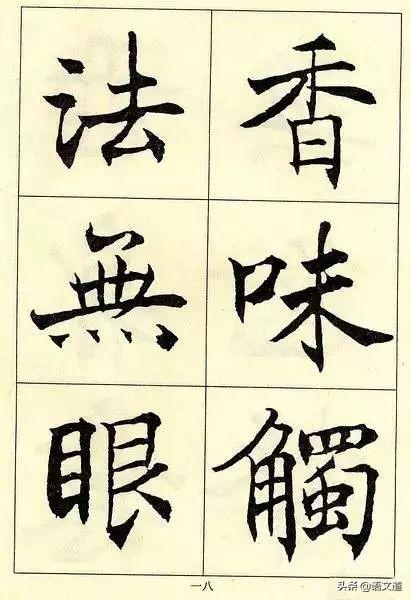 香味觸
法無眼
一八
头条@语文道